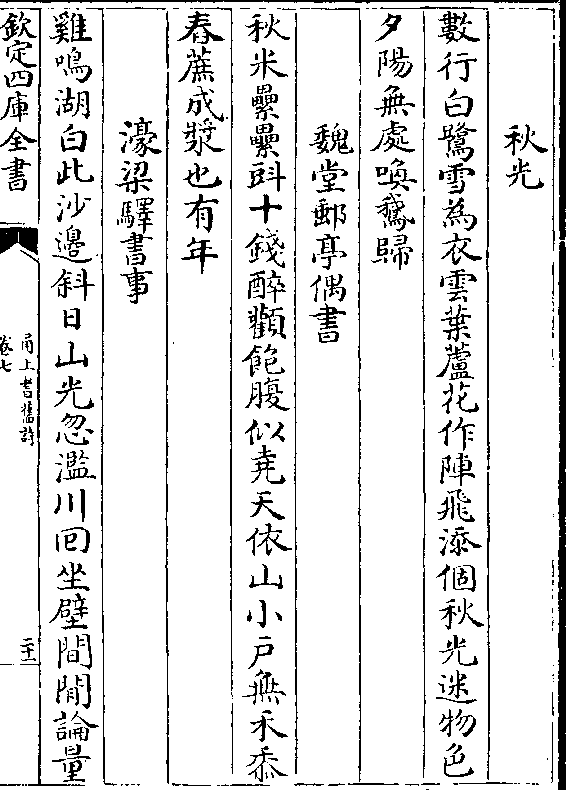 秋光
數行白鷺雪為衣雲葉蘆花作陣飛添個秋光迷物色
夕陽無處喚鵞歸
魏堂郵亭偶書
秋米纍纍㪷十錢醉顴飽腹似堯天依山小戸無禾黍
舂蔗成漿也有年
濠梁驛書事
雞鳴湖白此沙邊斜日山光忽濫川囘坐壁間閒論量
欽定四庫全書
甬上耆舊詩
卷七
二十二